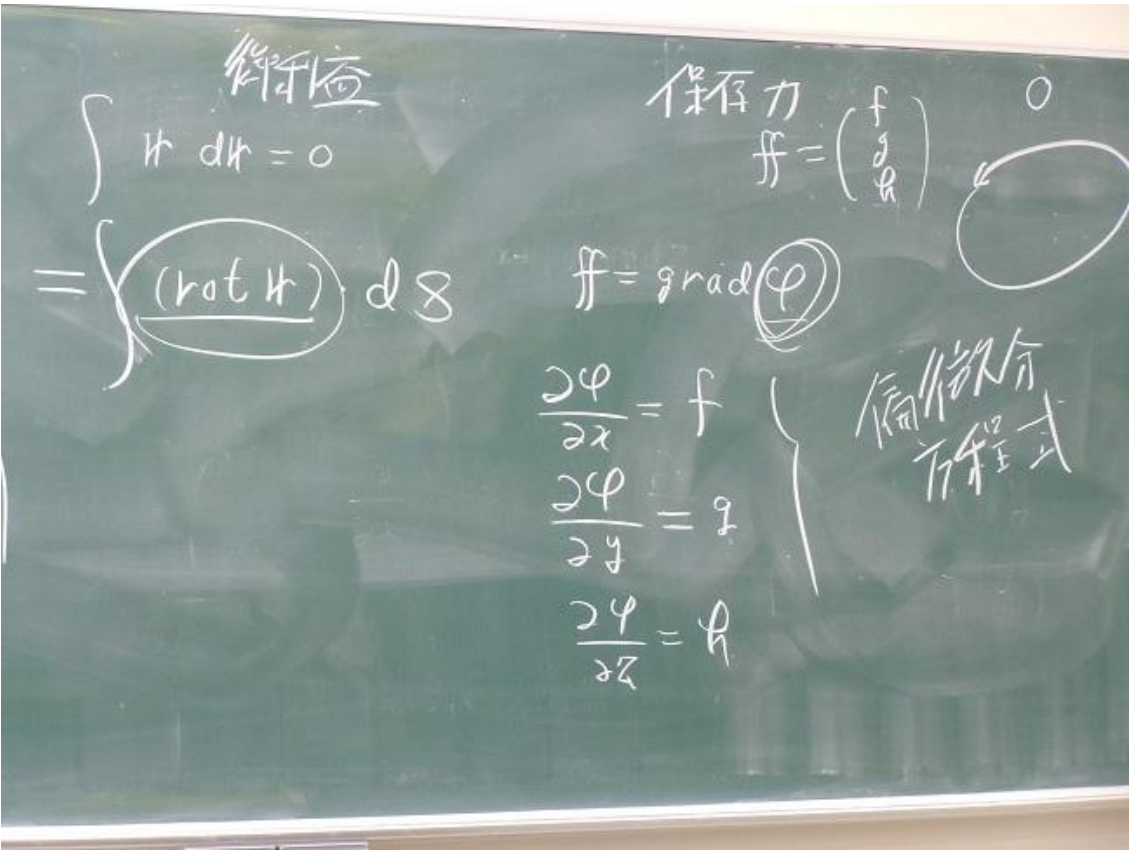 利益
∫ 𝕣 d𝕣 = 0
= ∫ (rot 𝕣)・d𝕊
保存力
0
𝕗 = (f g h)
𝕗 = grad φ
∂φ/∂x = f
∂φ/∂y = g
∂φ/∂z = h
偏微分
方程式